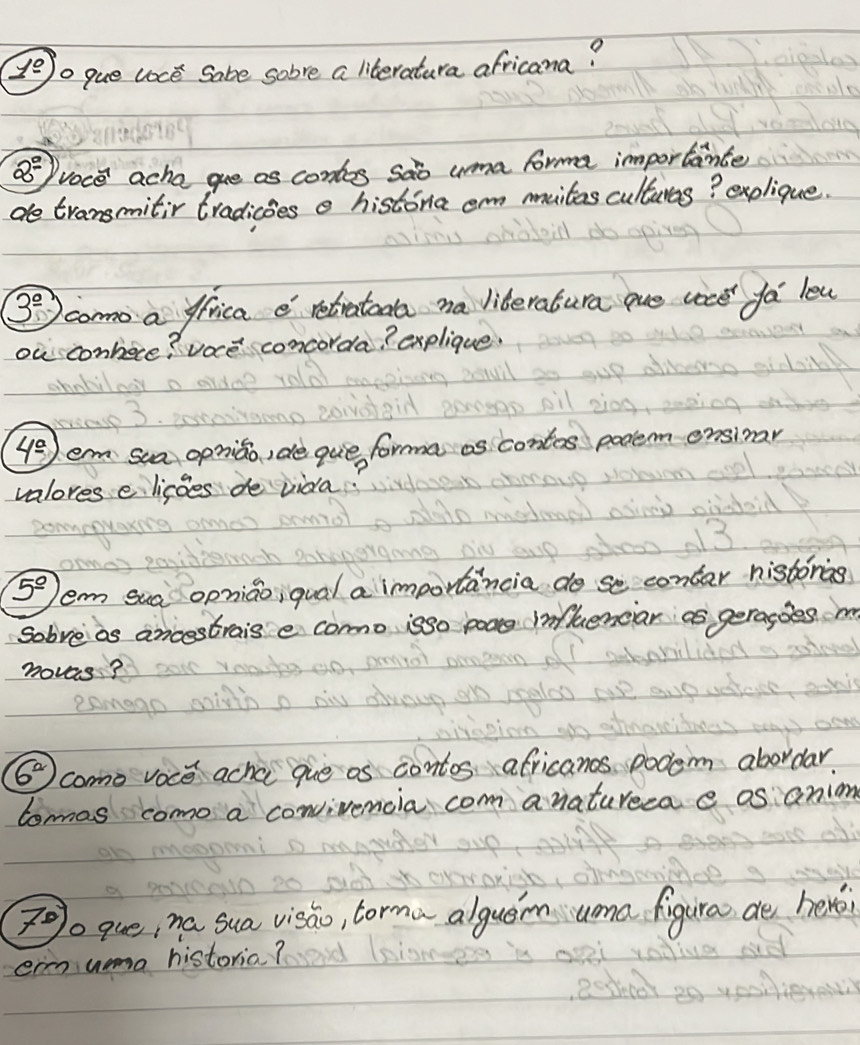 1º) o que você sabe sobre a literatura africana?
2ª) você acha que os contos são uma forma importânte
de transmitir tradições e história em muitas culturas? explique.
3ª) como a África é retratada na literatura que você já leu
ou conhece? você concorda? explique.
4ª) em sua opnião, de que forma os contos podem ensinar
valores e lições de vida?
5º) em sua opnião, qual a importância de se contar histórias
sobre os ancestrais e como isso pode influenciar as gerações m
novas?
6ª) como você acha que os contos africanos podem abordar
temas como a convivencia com a natureza e os anim
7º) o que, na sua visão, torna alguém uma figura de herói
em uma historia?